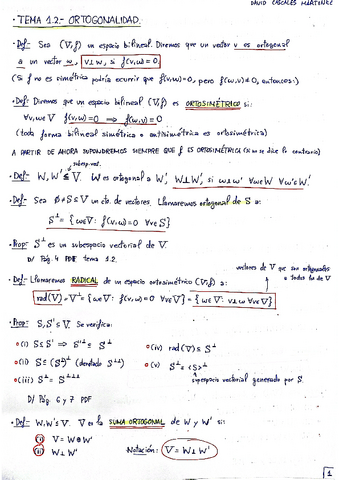 DAVID CASCALES MARTINEZ
• TEMA 1.2.- ORTOGONALIDAD.
• Def:- Sea (V,f) un espacio bilineal. Diremos que un vector v es ortogonal
a un vector w, v⊥w, si f(v,w)=0.
(Si f no es simétrica podría ocurrir que f(v,w)=0, pero f(w,v)≠0, entonces:)
• Def:- Diremos que un espacio bilineal (V,f) es ORTOSIMÉTRICO si:
∀v,w∈V f(v,w)=0 ⟹ f(w,v)=0
(toda forma bilineal simétrica o antisimétrica es ortosimétrica)
A PARTIR DE AHORA SUPONDREMOS SIEMPRE QUE f ES ORTOSIMÉTRICA (si no se dice lo contrario)
subesp.vect.
• Def:- W,W' ≤ V. W es ortogonal a W', W⊥W', si w⊥w' ∀w∈W ∀w'∈W'.
• Def:- Sea ∅≠S⊆V un cto. de vectores. Llamaremos ortogonal de S a:
S^⊥ = {w∈V: f(v,w)=0 ∀v∈S}
• Prop:- S^⊥ es un subespacio vectorial de V.
D/ Pág. 4 PDF tema 1.2.
vectores de V que son ortogonales
a todos los de V
• Def:- Llamaremos RADICAL de un espacio ortosimétrico (V,f) a:
rad(V)=V^⊥={w∈V: f(v,w)=0 ∀v∈V}={w∈V: v⊥w ∀v∈V}
• Prop:- S,S'⊆V. Se verifica:
(i) S⊆S' ⟹ S'^⊥ ⊆ S^⊥
(iv) rad(V) ⊆ S^⊥
(ii) S⊆(S^⊥)^⊥ (denotado S^⊥⊥)
(v) S^⊥ = <S>^⊥
(iii) S^⊥ = S^⊥⊥⊥
subespacio vectorial generado por S.
D/ Pág. 6 y 7 PDF
• Def:- W,W'≤V. V es la SUMA ORTOGONAL de W y W' si:
(i) V = W⊕W'
(ii) W⊥W'
Notación: V = W⊥W'
1